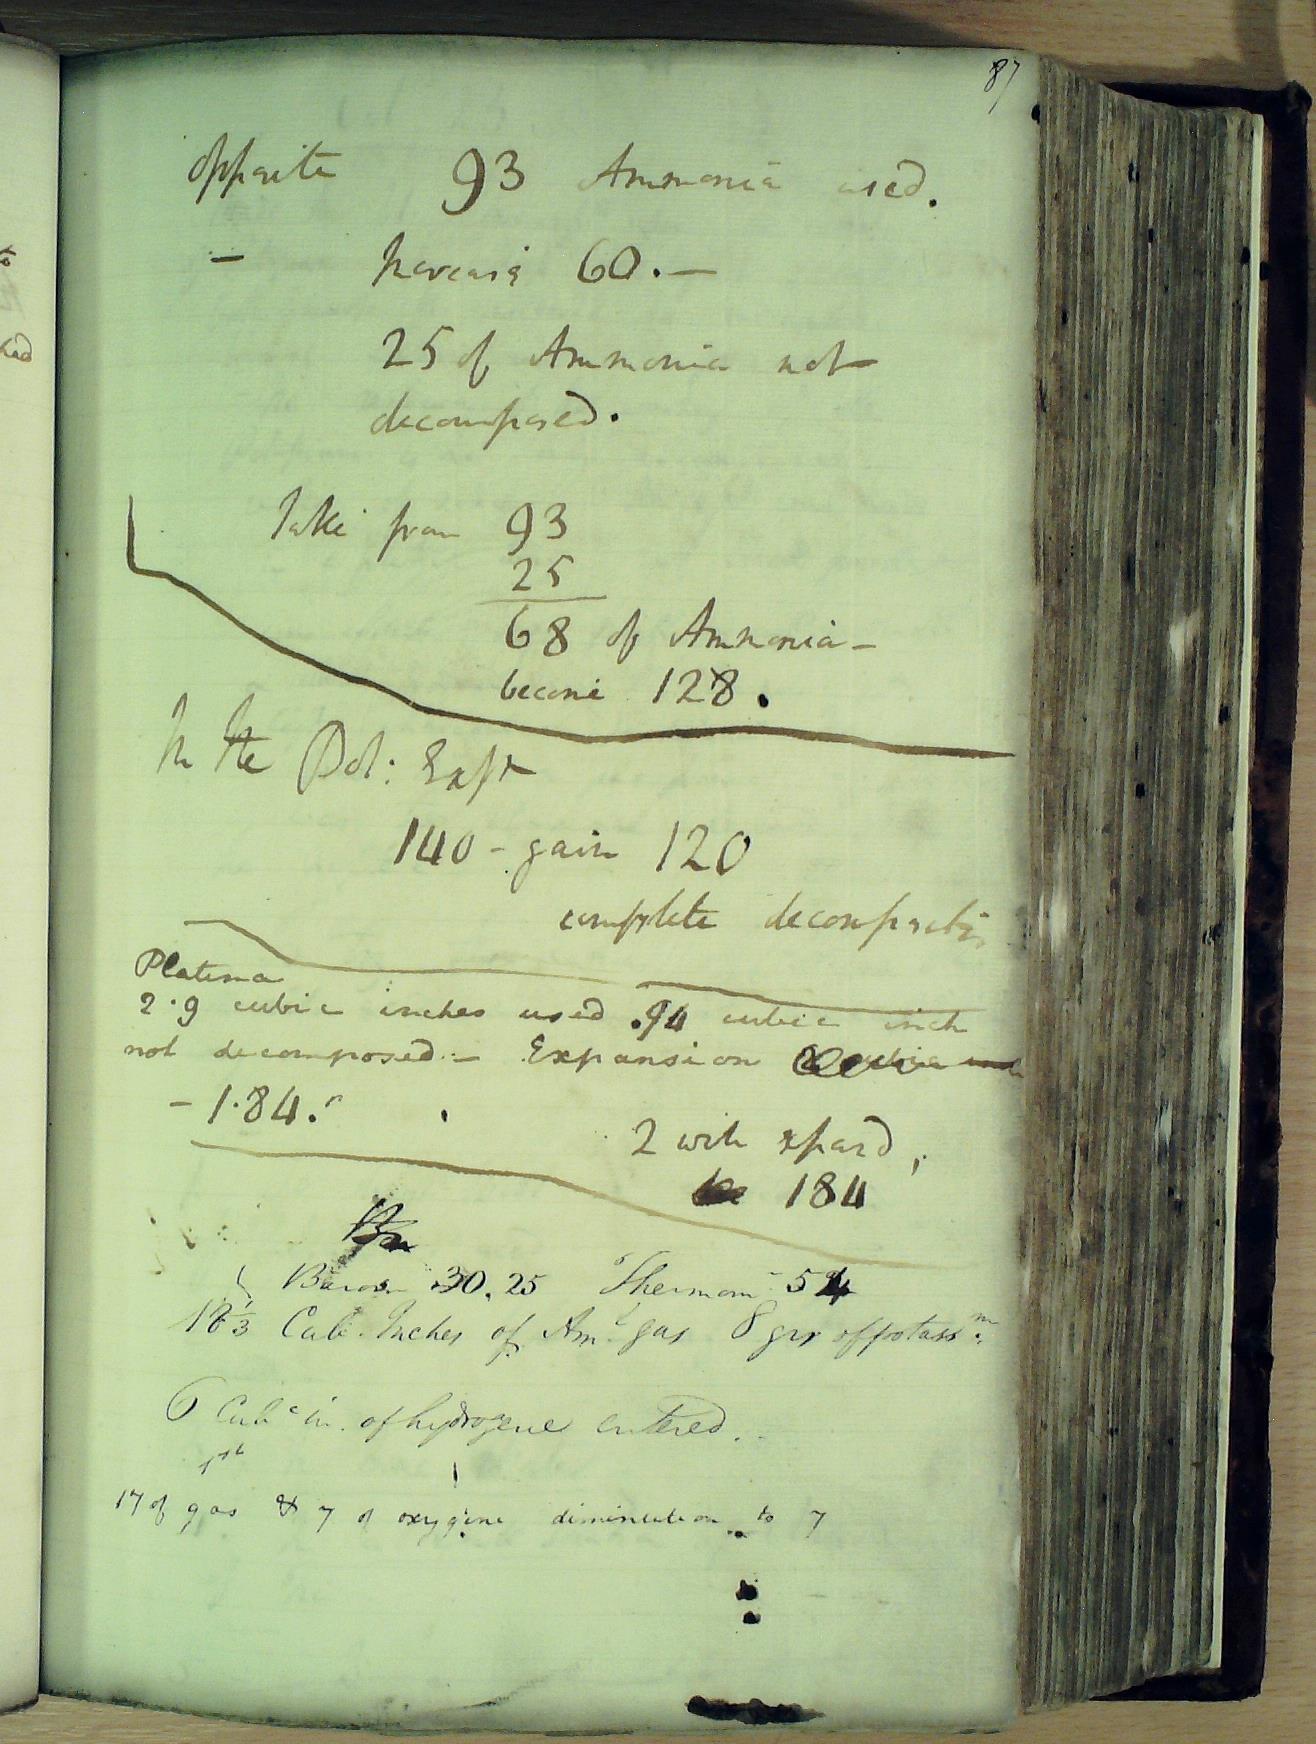 87
opposite 93 Ammonia used.
- Increase 60.-
25 of Ammonia not
decomposed.
Take from 93
25
68 of Ammonia -
become 128.
In the Pot: Expt
140 - gain 120
complete decomposition
Platina
2.9 cubic inches used .94 cubic inch
not decomposed - Expansion
- 1.84.
2 will expand,
184
Barom 30.25 Thermom 54
18 1/3 Cub. Inches of Am.l gas 8 grs of potassm.
6 Cubc in. of hydrogene entered.
1st
17 of gas & 7 of oxygene diminution to 7